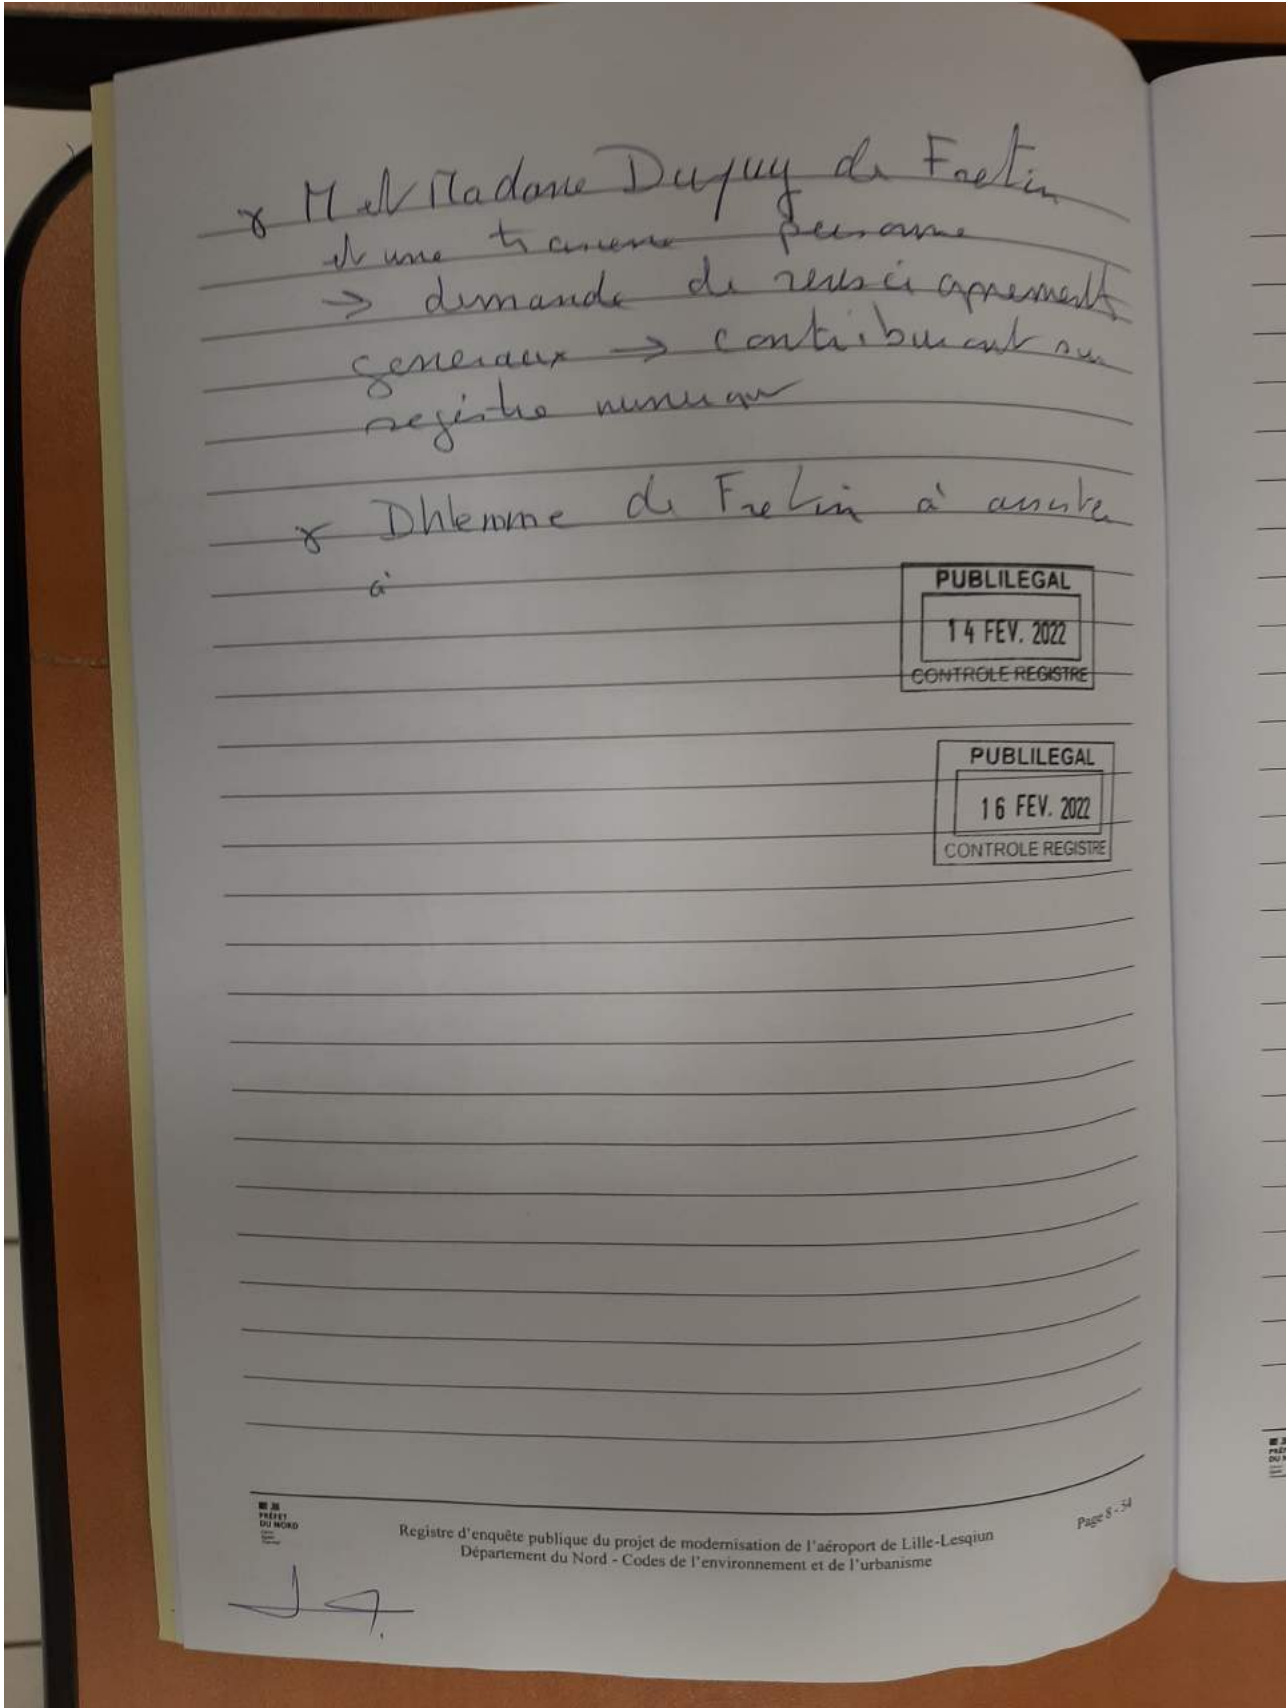 M et Madame Dupuy de Fretin
et une troisième personne
→ demande de renseignements
generaux → contribueront sur
registre numerique
Dhlemme de Fretin à
à
PUBLILEGAL
14 FEV. 2022
CONTROLE REGISTRE
PUBLILEGAL
16 FEV. 2022
CONTROLE REGISTRE
PRÉFET
DU NORD
Registre d'enquête publique du projet de modernisation de l'aéroport de Lille-Lesqiun
Département du Nord - Codes de l'environnement et de l'urbanisme
Page 8 - 34